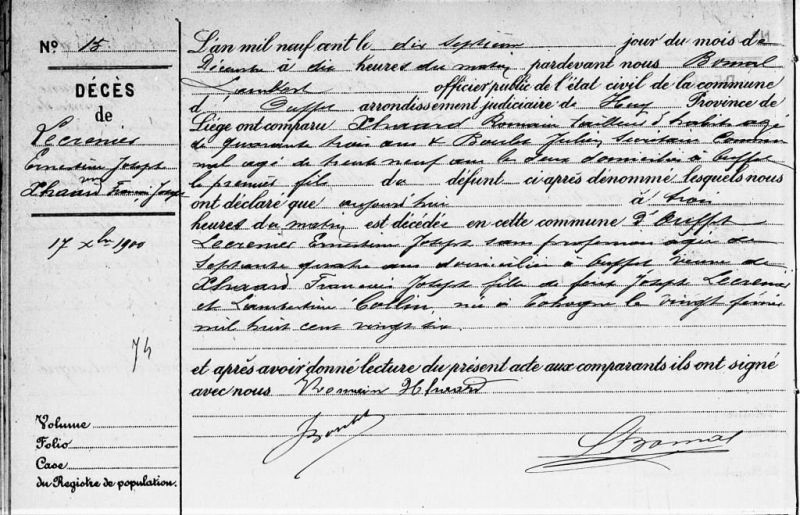 Nº 15
DÉCÈS
de
Lecrenier
Ernestine Joseph
Vve
Xhaard François Joseph
17 Xbre 1900
74
Volume
Folio
Case
du Registre de population.
L'an mil neuf cent le dix septième jour du mois de
Décembre à dix heures du matin pardevant nous Bomal
Lambert officier public de l'état civil de la commune
d' Ouffet arrondissement judiciaire de Huy Province de
Liége ont comparu Xhaard Romain tailleur d'habits agé
de quarante trois ans & Boulet Julien Secrétaire Commu
nal agé de trente neuf ans les deux domiciliés à Ouffet
le premier fils du défunt ci-après dénommé lesquels nous
ont déclaré que aujourd'hui à trois
heures du matin est décédée en cette commune d'Ouffet
Lecrenier Ernestine Joseph sans profession agée de
Septante quatre ans domiciliée à Ouffet Veuve de
Xhaard François Joseph fille de feus Joseph Lecrenier
et Lambertine Collin, née à Tohogne le vingt février
mil huit cent vingt six.
et après avoir donné lecture du présent acte aux comparants ils ont signé
avec nous Romain Xhaard
JBoulet
LBomal